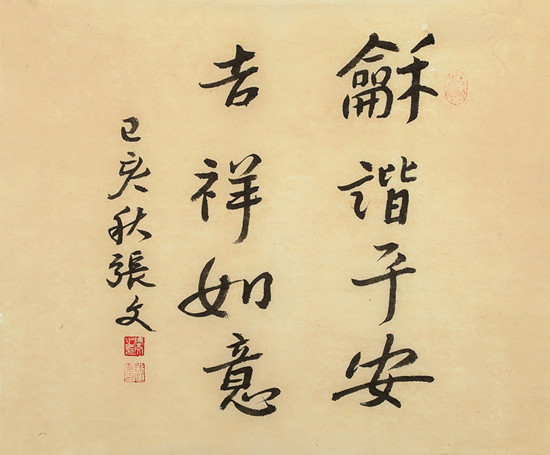 龢諧平安
吉祥如意
己亥秋張文